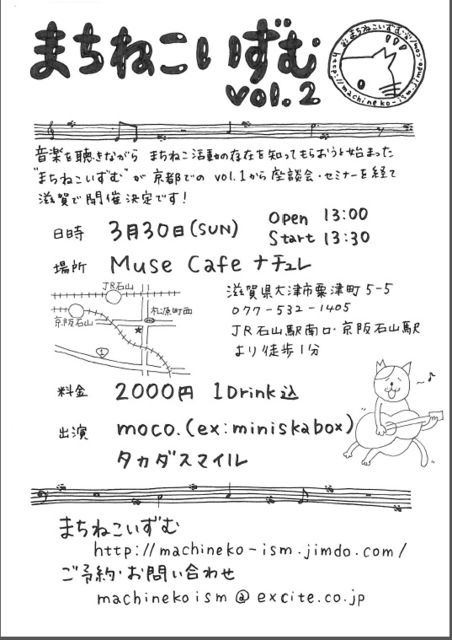 まちねこいずむ
vol.2
http://machineko-ism.jimdo.com/
音楽を聴きながら まちねこ活動の存在を知ってもらおうと始まった
"まちねこいずむ"が京都でのvol.1から座談会・セミナーを経て
滋賀で開催決定です!
日時 3月30日(SUN) Open 13:00
Start 13:30
場所 Muse Cafe ナチュレ
滋賀県大津市粟津町5-5
077-532-1405
JR石山駅南口・京阪石山駅
より徒歩1分
JR石山
京阪石山
松原町西
1
料金 2000円 1Drink込
出演 moco.(ex:miniskabox)
タカダスマイル
まちねこいずむ
http://machineko-ism.jimdo.com/
ご予約・お問い合わせ
machinekoism@excite.co.jp